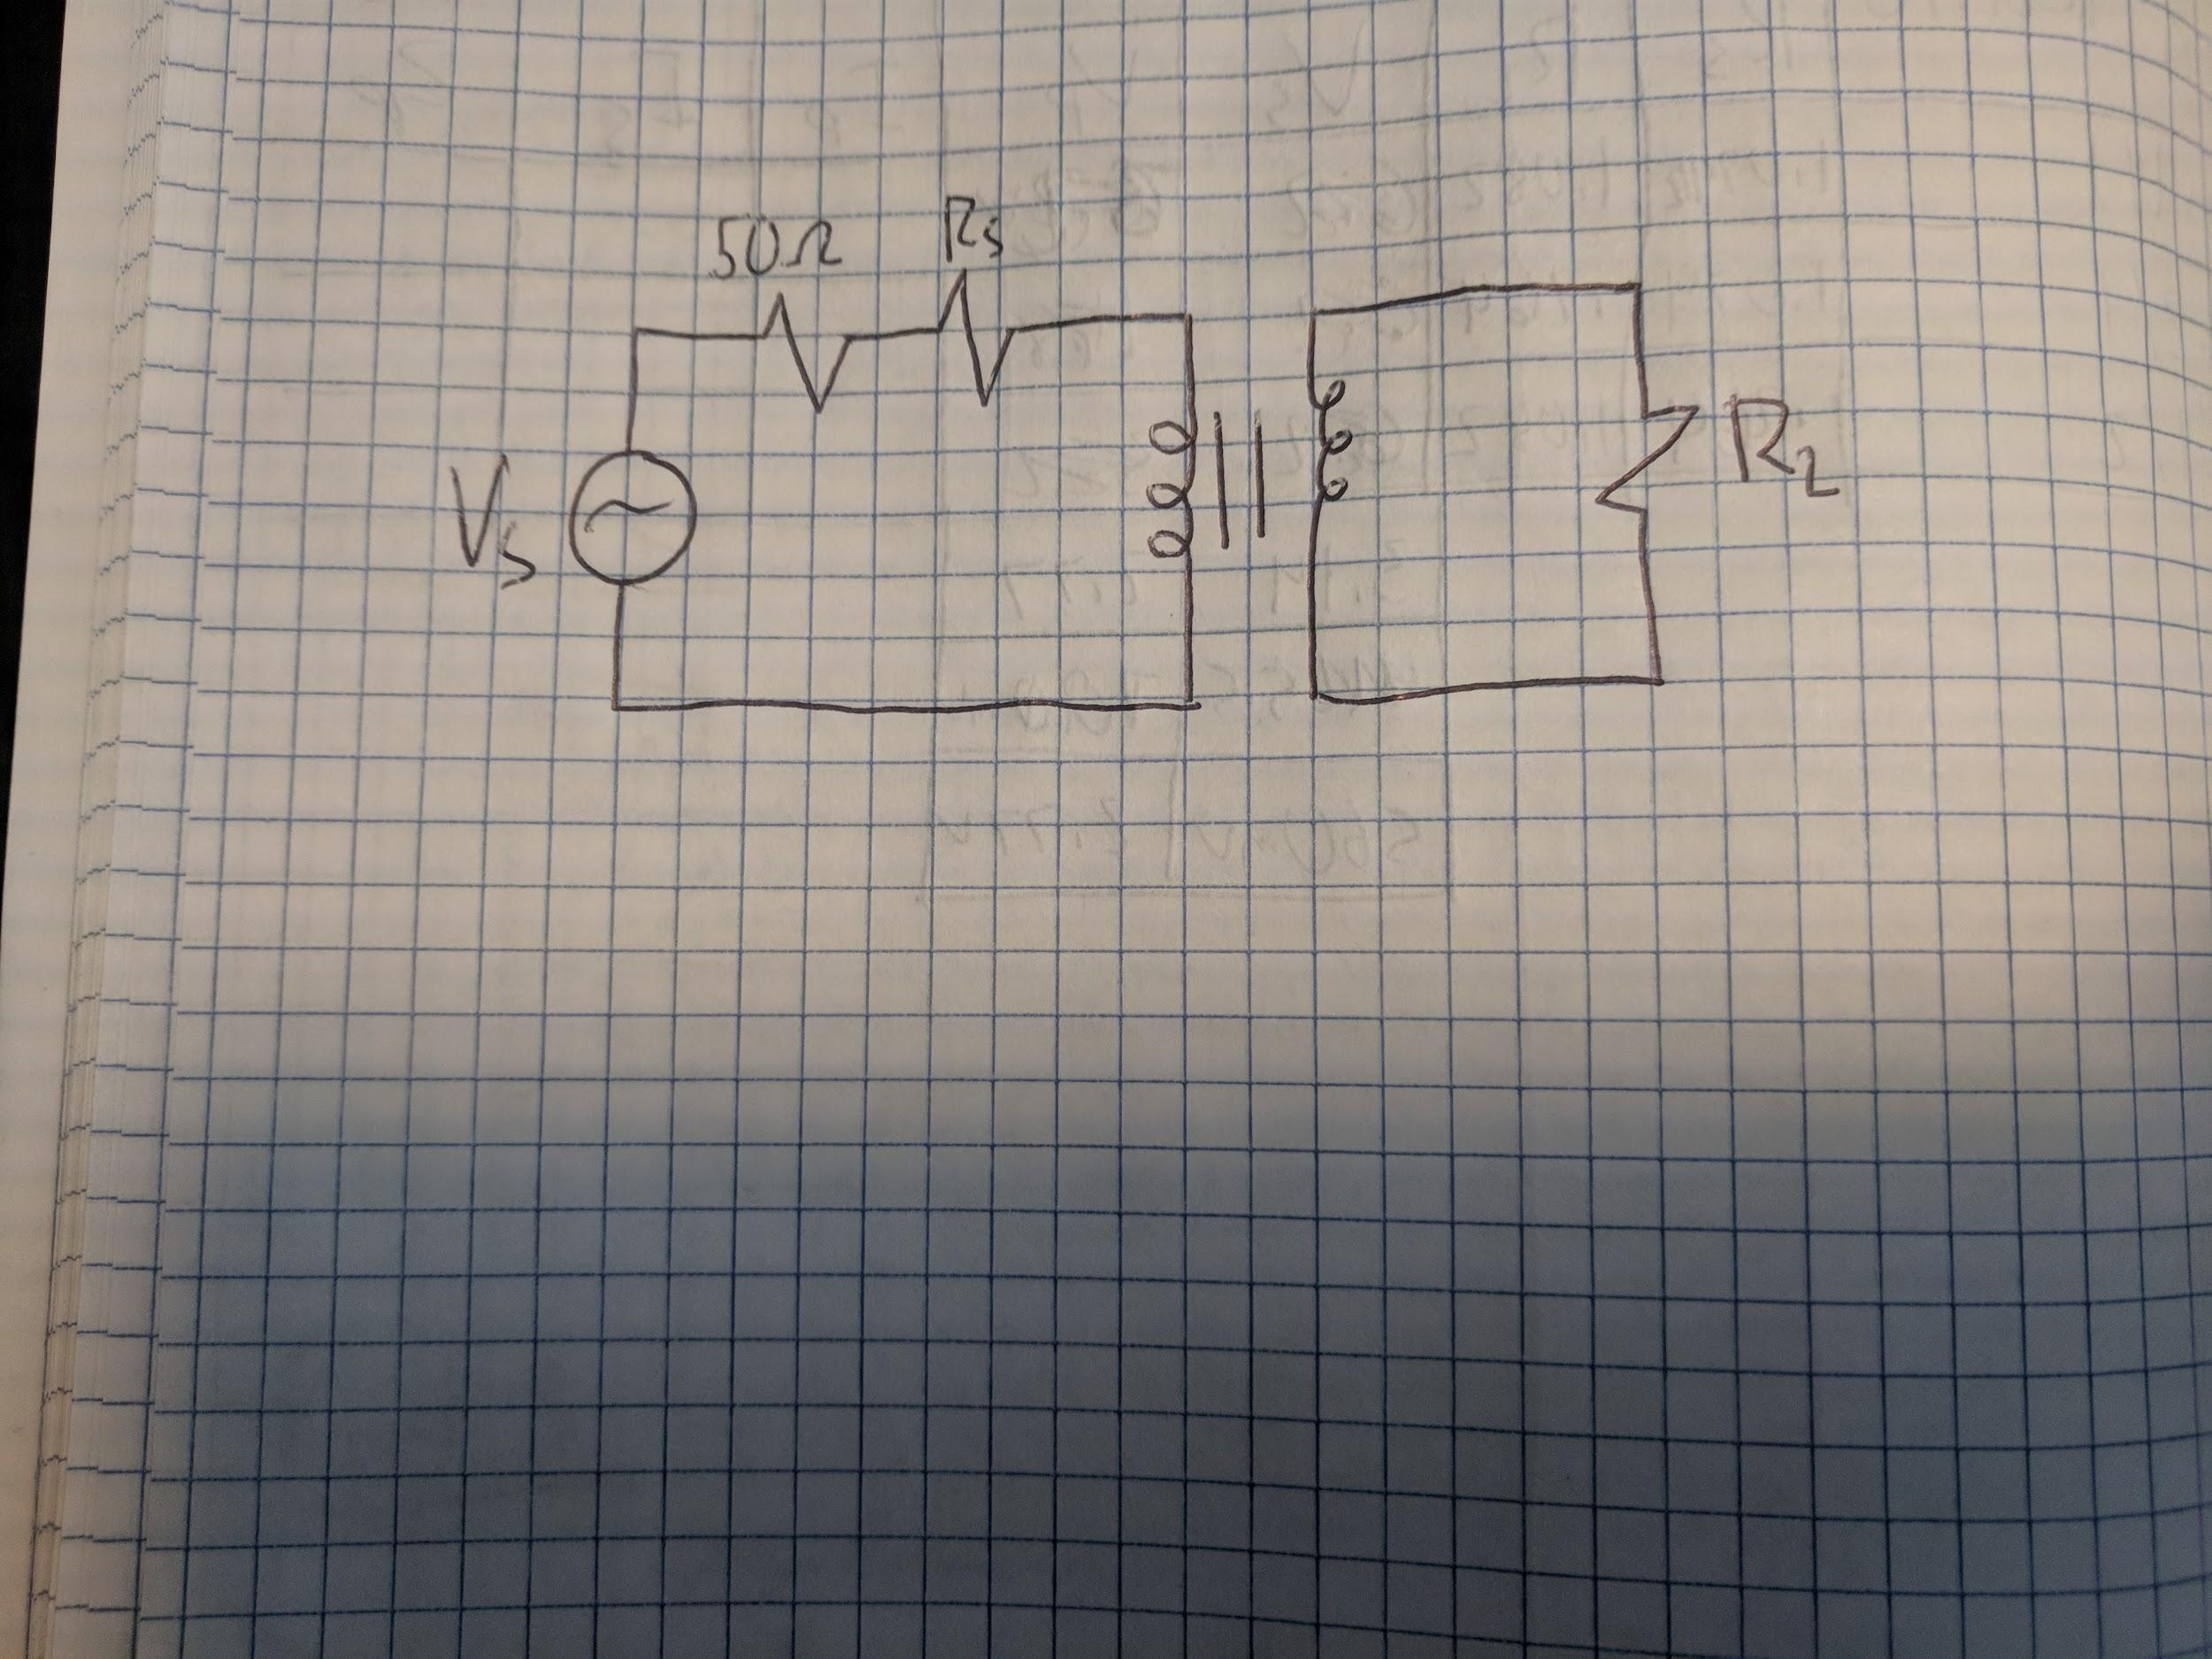 50Ω Rs
Vs
RL